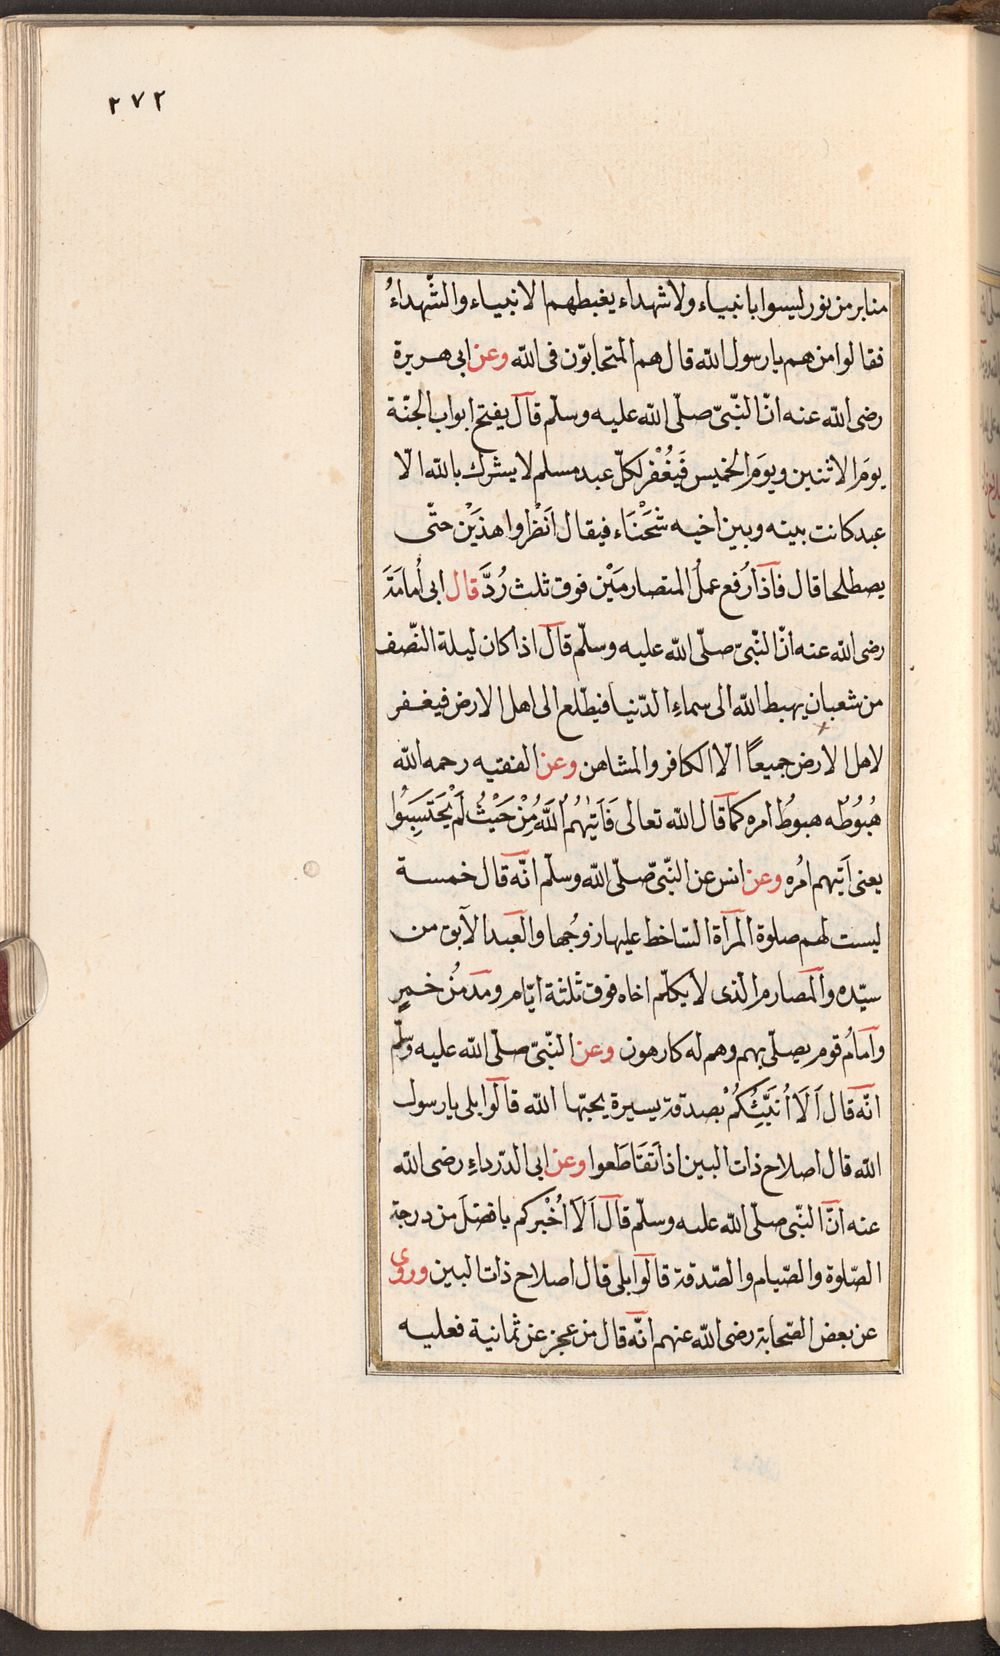 ٢٧٢
منابر من نور ليسوا بانبياء ولا شهداء يغبطهم الانبياء والشّهداءُ
فقالوا من هم يا رسول الله قال هم المتحابّون فى الله وعن ابى هريرة
رضى الله عنه انّ النّبىّ صلّى الله عليه وسلّم قال يفتح ابواب الجنّة
يومَ الاثنين ويومَ الخميس فَيُغْفر لكلّ عبد مسلم لا يشرك بالله الّا
عبد كانت بينه وبين اخيه شَحْنَاء فيقال اَنْظِروا هذَيْن حتّى
يصطلحا قال فاذا رُفع عملُ المتصارمَيْن فوق ثلث رُدَّ قال ابى اُمامَةَ
رضى الله عنه انّ النّبىّ صلّى الله عليه وسلّم قال اذا كان ليلة النّصف
من شعبان يهبط الله الى سماءِ الدّنيا فيطّلع الى اهل الارض فيغفر
لاهل الارض جميعاً الّا الكافر والمشاهن وعن الفقيه رحمه الله
هُبُوطُه هبوطُ امره كما قال الله تعالى فَاَتٰيهُمُ اللهُ مِنْ حَيْثُ لَمْ يَحْتَسِبُوْا
يعنى اَتيهم امُره وعن انس عن النّبىّ صلّى الله وسلّم انّه قال خمسة
ليست لهم صلوة المرأة السّاخط عليها زوجُها والعبد الآبق من
سيّده والمصارم الّذى لا يكلّم اخاه فوق ثلثة ايّام ومدمنُ خمرٍ
وامامُ قوم يصلّى بهم وهم له كارهون وعن النّبىّ صلّى الله عليه وسلّم
انّه قال اَلَا اُنَبِّئُكُمْ بصدقة يسيرة يحبّها الله قالوا بلى يا رسول
الله قال اصلاح ذات البين اذا تَقَاطَعوا وعن ابى الدّرداءِ رضى الله
عنه انّ النّبى صلّى الله عليه وسلّم قال اَلَا اُخْبركم بافضلَ من درجة
الصّلوة والصّيام والصّدقة قالوا بلى قال اصلاح ذات البين وروى
عن بعض الصّحابة رضى الله عنهم انّه قال من عجز عن ثمانية فعليه